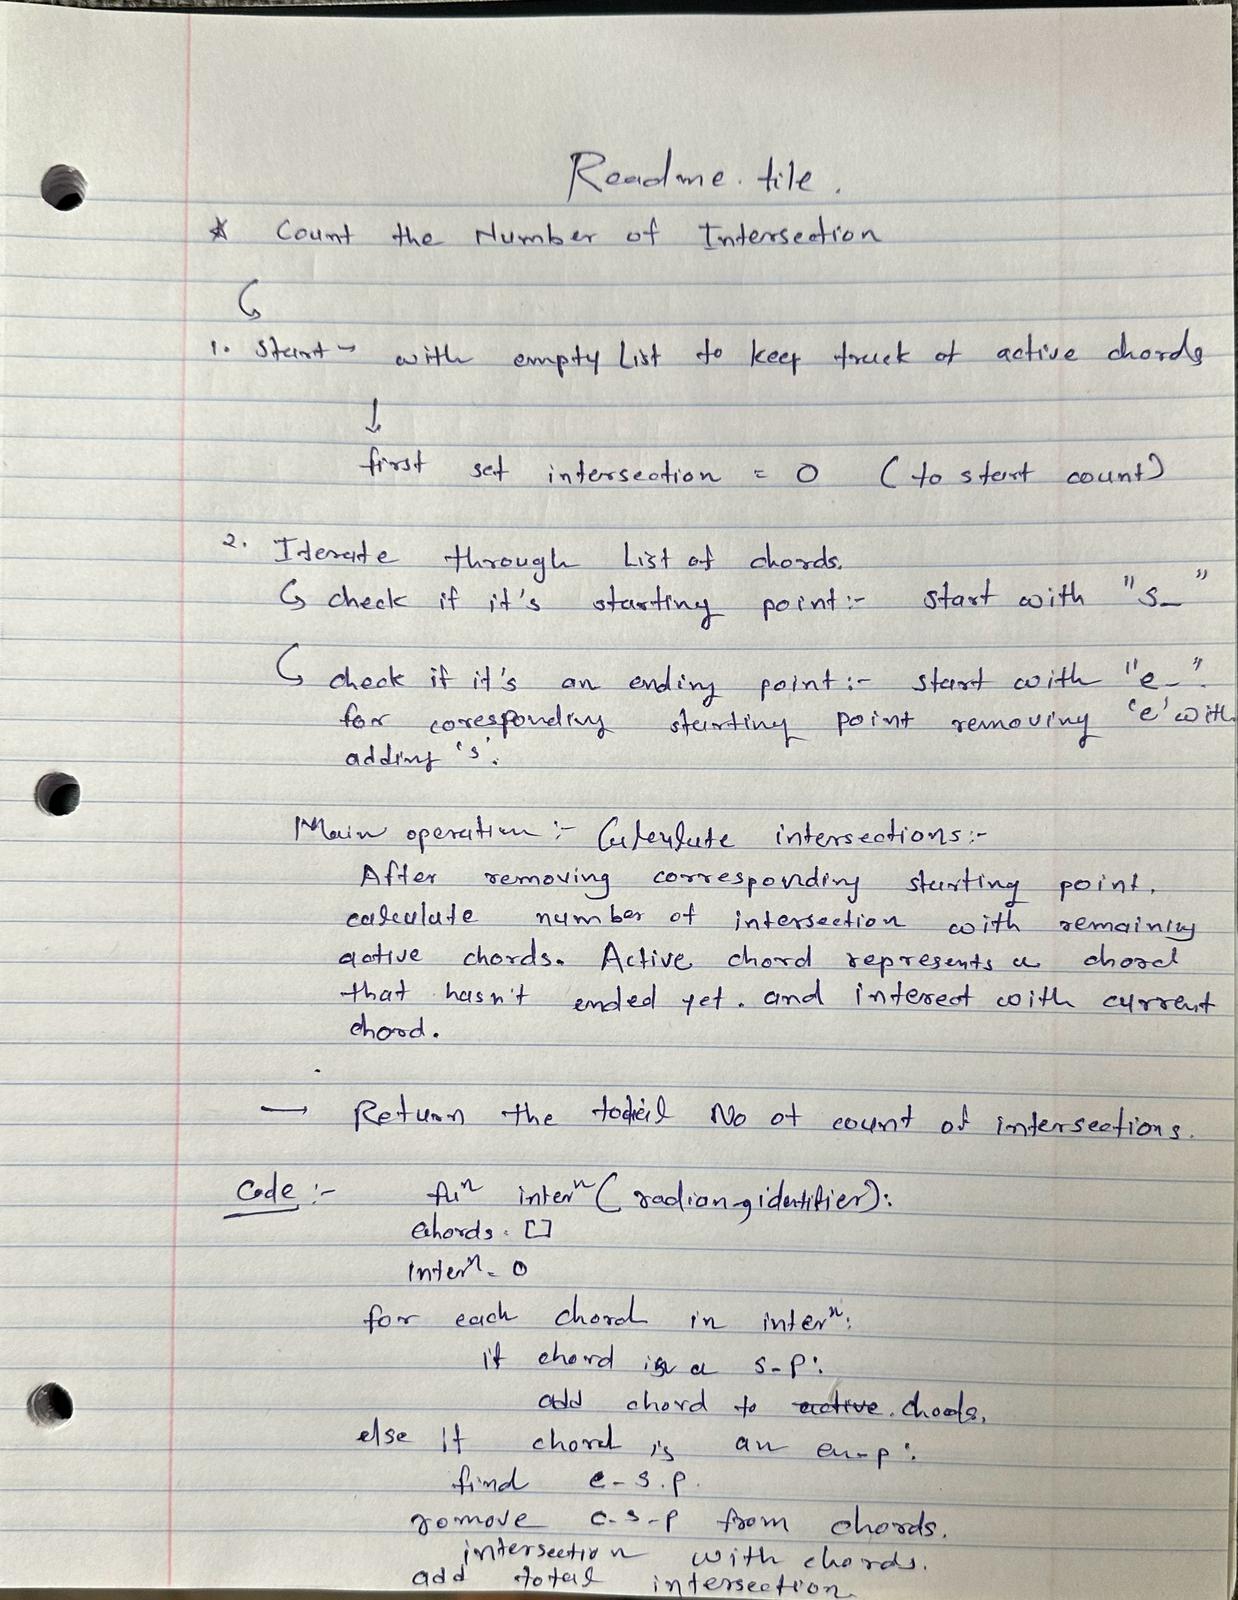 Readme. file.
* Count the Number of Intersection
1. Start → with empty List to keep track of active chords
first set intersection = 0 (to start count)
2. Iterate through List of chords.
check if it's starting point:- start with "s_"
check if it's an ending point:- start with "e_".
for coresponding starting point removing 'e' with
adding 's'.
Main operation :- Calculate intersections:-
After removing corresponding starting point.
calculate number of intersection with remaining
active chords. Active chord represents a chord
that hasn't ended yet. and interect with current
chord.
— Return the total No of count of intersections.
Code :- fuⁿ interⁿ (radian, identifier):
chords = []
interⁿ = 0
for each chord in interⁿ:
if chord is a s-p:
add chord to active. chords.
else if chord is an en-p:
find c-s.p.
remove c-s-p from chords.
intersection with chords.
add total intersection.